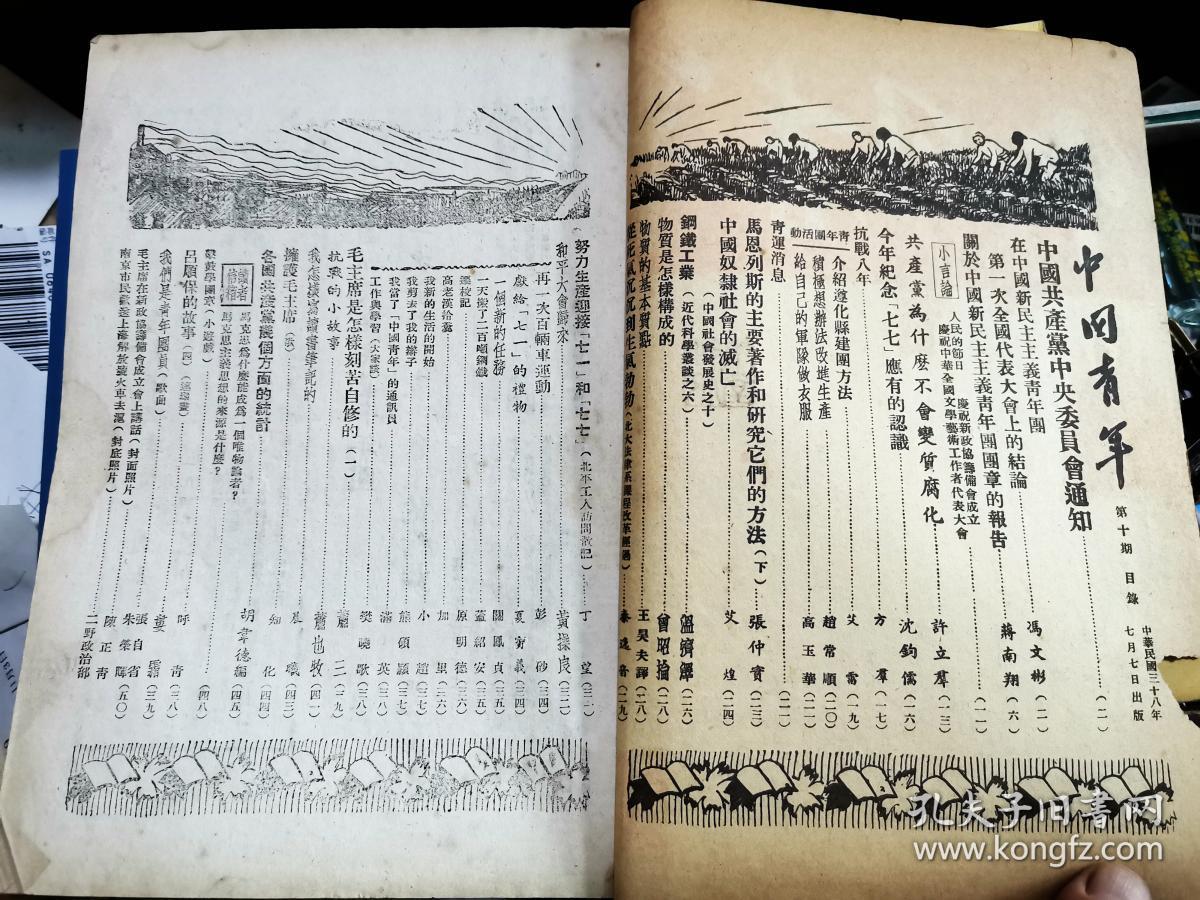 中国青年
第十期 目錄
中華民國三十八年
七月七日出版
中國共產黨中央委員會通知 (一)
在中國新民主主義青年團
第一次全國代表大會上的結論 馮文彬 (一)
關於中國新民主主義青年團團章的報告 蔣南翔 (六)
小言論
人民的節日 慶祝新政協籌備會成立
慶祝中華全國文學藝術工作者代表大會 (一一)
共產黨為什麼不會變質腐化 許立羣 (一三)
今年紀念「七七」應有的認識 沈鈞儒 (一六)
抗戰八年 方羣 (一七)
青年團活動
介紹遵化縣建團方法 艾雷 (一九)
積極想辦法改進生產 趙常順 (二〇)
給自己的軍隊做衣服 高玉華 (二一)
青運消息 (二一)
馬恩列斯的主要著作和研究它們的方法 (下) 張仲實 (二三)
中國奴隸社會的滅亡 艾煌 (二四)
(中國社會發展史之十)
鋼鐵工業 (近代科學叢談之六) 溫濟澤 (二六)
物質是怎樣構成的 曾昭掄 (二八)
物質的基本質點 王昊夫譯 (二八)
從死氣沉沉到生氣勃勃 (北大法律系課程改革經過) 秦逸音 (二九)
努力生產迎接「七一」和「七七」 (北平工人訪問散記) 丁望 (三一)
和平大會歸來 黃操良 (三二)
再一次百輛車運動 彭砂 (三四)
獻給「七一」的禮物 夏宥義 (三四)
一個新的任務 關鳳貞 (三五)
一天搬了二百噸鋼鐵 蓋紹安 (三五)
護校記 原明德 (三六)
高老漢拾糞 加里 (三六)
我新的生活的開始 小趙 (三七)
我剪去了我的辮子 熊碩潁 (三七)
我當了「中國青年」的通訊員 滿英 (三八)
工作與學習 (大家談) 樊曉歌 (三八)
毛主席是怎樣刻苦自修的 (一) 蕭三 (三九)
抗戰的小故事
我怎樣寫讀書筆記的 蕭也牧 (四一)
擁護毛主席 (歌) 晨曦 (四三)
各國共產黨幾個方面的統計 知化 (四四)
讀者信箱
馬克思為什麼能成為一個唯物論者?
馬克思主義思想的來源是什麼? 胡韋德編 (四五)
擊鼓學團章 (小遊戲) (四八)
呂順保的故事 (四) (連環畫) 呼青 (一八)
我們是青年團員 (歌曲)
毛主席在新政協籌備會成立會上講話 (封面照片)
南京市民歡送上海解放號火車去滬 (封底照片) 二野政治部